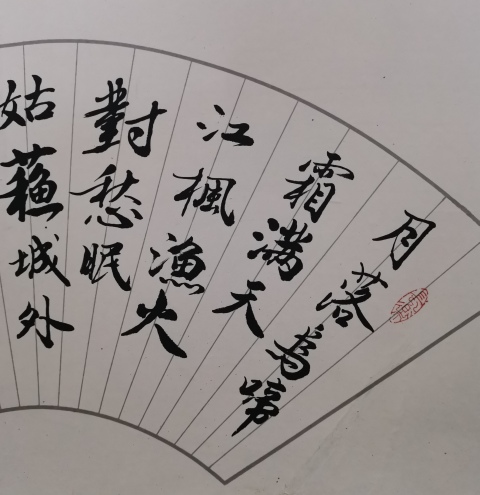 月落烏啼
霜滿天
江楓漁火
對愁眠
姑蘓城外